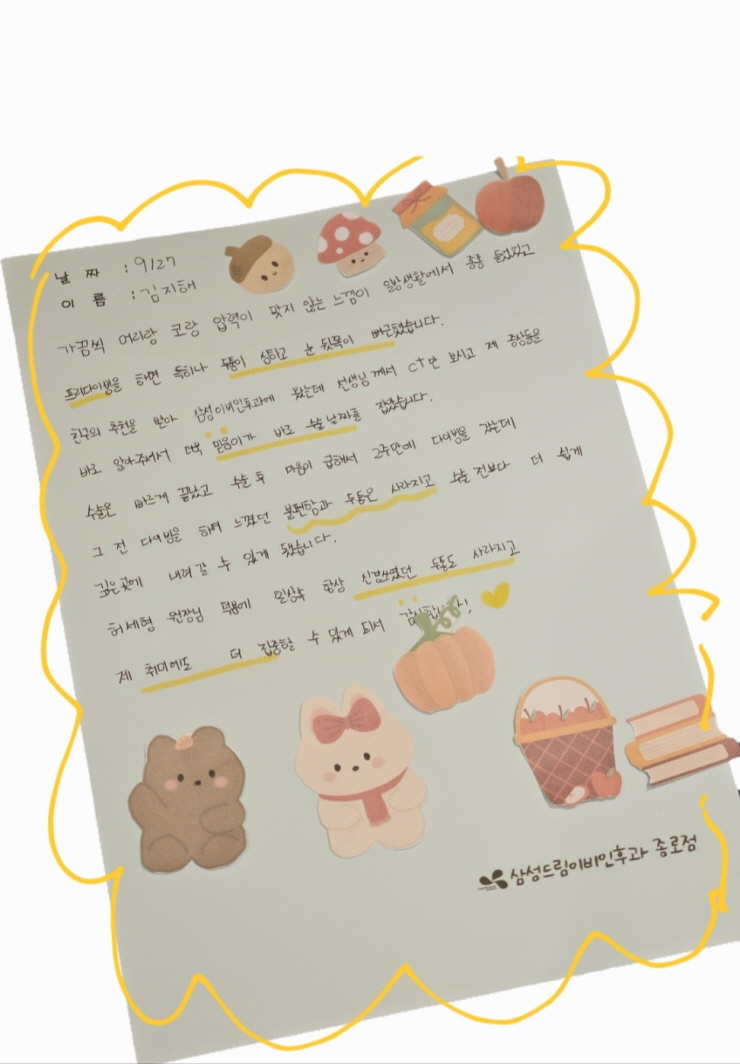 날 짜 : 9/27
이 름 : 김지해
가끔씩 머리랑 코랑 압력이 맞지 않는 느낌이 일상생활에서 종종 들었었고
프리다이빙을 하면 특히나 두통이 심하고 눈 뒷쪽이 뻐근했습니다.
친구의 추천을 받아 삼성이비인후과에 왔는데 선생님께서 CT만 보시고 제 증상들을
바로 알아주셔서 더욱 믿음이가 바로 수술날짜를 잡았습니다.
수술은 빠르게 끝났고 수술 후 마음이 급해서 2주만에 다이빙을 갔는데
그 전 다이빙을 하며 느꼈던 불편함과 두통은 사라지고 수술 전보다 더 쉽게
깊은곳에 내려갈 수 있게 됐습니다.
허세형 원장님 덕분에 일상속 항상 신경쓰였던 두통도 사라지고
제 취미에도 더 집중할 수 있게 되서 감사합니다!
삼성드림이비인후과 종로점